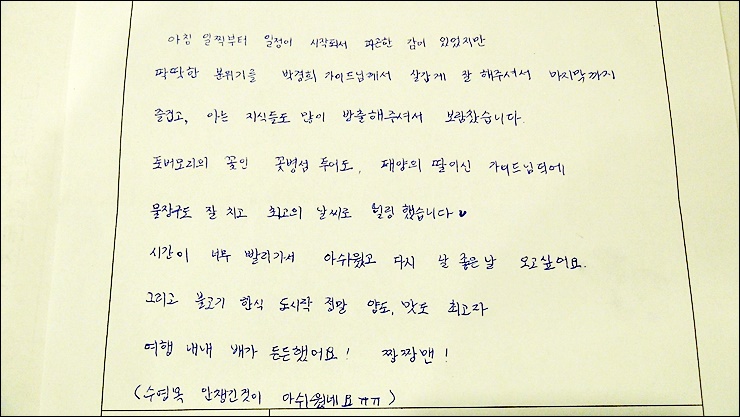 아침 일찍부터 일정이 시작되서 피곤한 감이 있었지만
딱딱한 분위기를 박경희 가이드님께서 살갑게 잘 해주셔서 마지막까지
즐겁고, 아는 지식들도 많이 방출해주셔서 보람찼습니다.
포버모리의 꽃인 꽃병섬 투어도, 태양의 딸이신 가이드님덕에
물장구도 잘 치고 최고의 날씨로 힐링했습니다♥
시간이 너무 빨리가서 아쉬웠고 다시 날 좋은날 오고싶어요.
그리고 불고기 한식 도시락 정말 양도, 맛도 최고라
여행 내내 배가 든든했어요! 짱짱맨!
(수영복 안챙긴것이 아쉬웠네요ㅠㅠ)